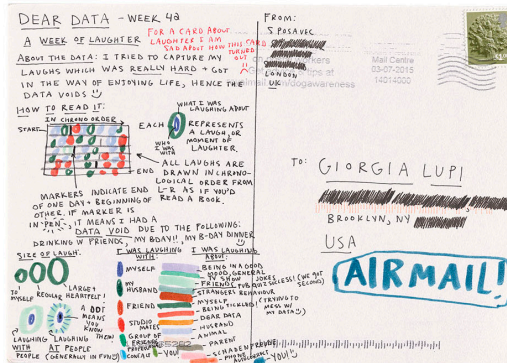 DEAR DATA - WEEK 42
A WEEK OF LAUGHTER
FOR A CARD ABOUT
LAUGHTER I AM
SAD ABOUT HOW THIS CARD
TURNED
OUT
!!
ABOUT THE DATA: I TRIED TO CAPTURE MY
LAUGHS WHICH WAS REALLY HARD + GOT
IN THE WAY OF ENJOYING LIFE, HENCE THE
DATA VOIDS
HOW TO READ IT:
IN CHRONO ORDER
START
END
WHAT I WAS
LAUGHING ABOUT
EACH
REPRESENTS
A LAUGH, OR
MOMENT OF
LAUGHTER.
WHO
I WAS
WITH
ALL LAUGHS ARE
DRAWN IN CHRONO-
LOGICAL ORDER FROM
L-R AS IF YOU'D
READ A BOOK.
MARKERS INDICATE END
OF ONE DAY + BEGINNING OF
OTHER. IF MARKER IS
IN "PEN", IT MEANS I HAD A
DATA VOID DUE TO THE FOLLOWING:
DRINKING W FRIENDS, MY BDAY!!, MY B-DAY DINNER
SIZE OF LAUGH:
TO
MYSELF
REGULAR
LARGE!
HEARTFELT!
A DOT
MEANS YOU
KNOW THEM
LAUGHING
WITH
PEOPLE
LAUGHING
AT PEOPLE
(GENERALLY IN FUN)
I WAS LAUGHING
WITH:
MYSELF
MY
HUSBAND
FRIEND
STUDIO
MATES
GROUP OF
FRIENDS
YOU
I WAS LAUGHING
ABOUT:
BEING IN A GOOD
MOOD, GENERAL
TV SHOW JOKES
FRIENDS
PUB QUIZ SUCCESS! (WE GOT
SECOND)
STRANGERS BEHAVIOUR
MYSELF
BEING TICKLED!
(TRYING TO
MESS W
MY DATA)
DEAR DATA
HUSBAND
ANIMAL
PARENT
SCHADENFREUDE
YOU!
FROM:
S POSAVEC
LONDON
UK
Mail Centre
03-07-2015
14014000
TO:
GIORGIA LUPI
BROOKLYN, NY
USA
AIRMAIL!